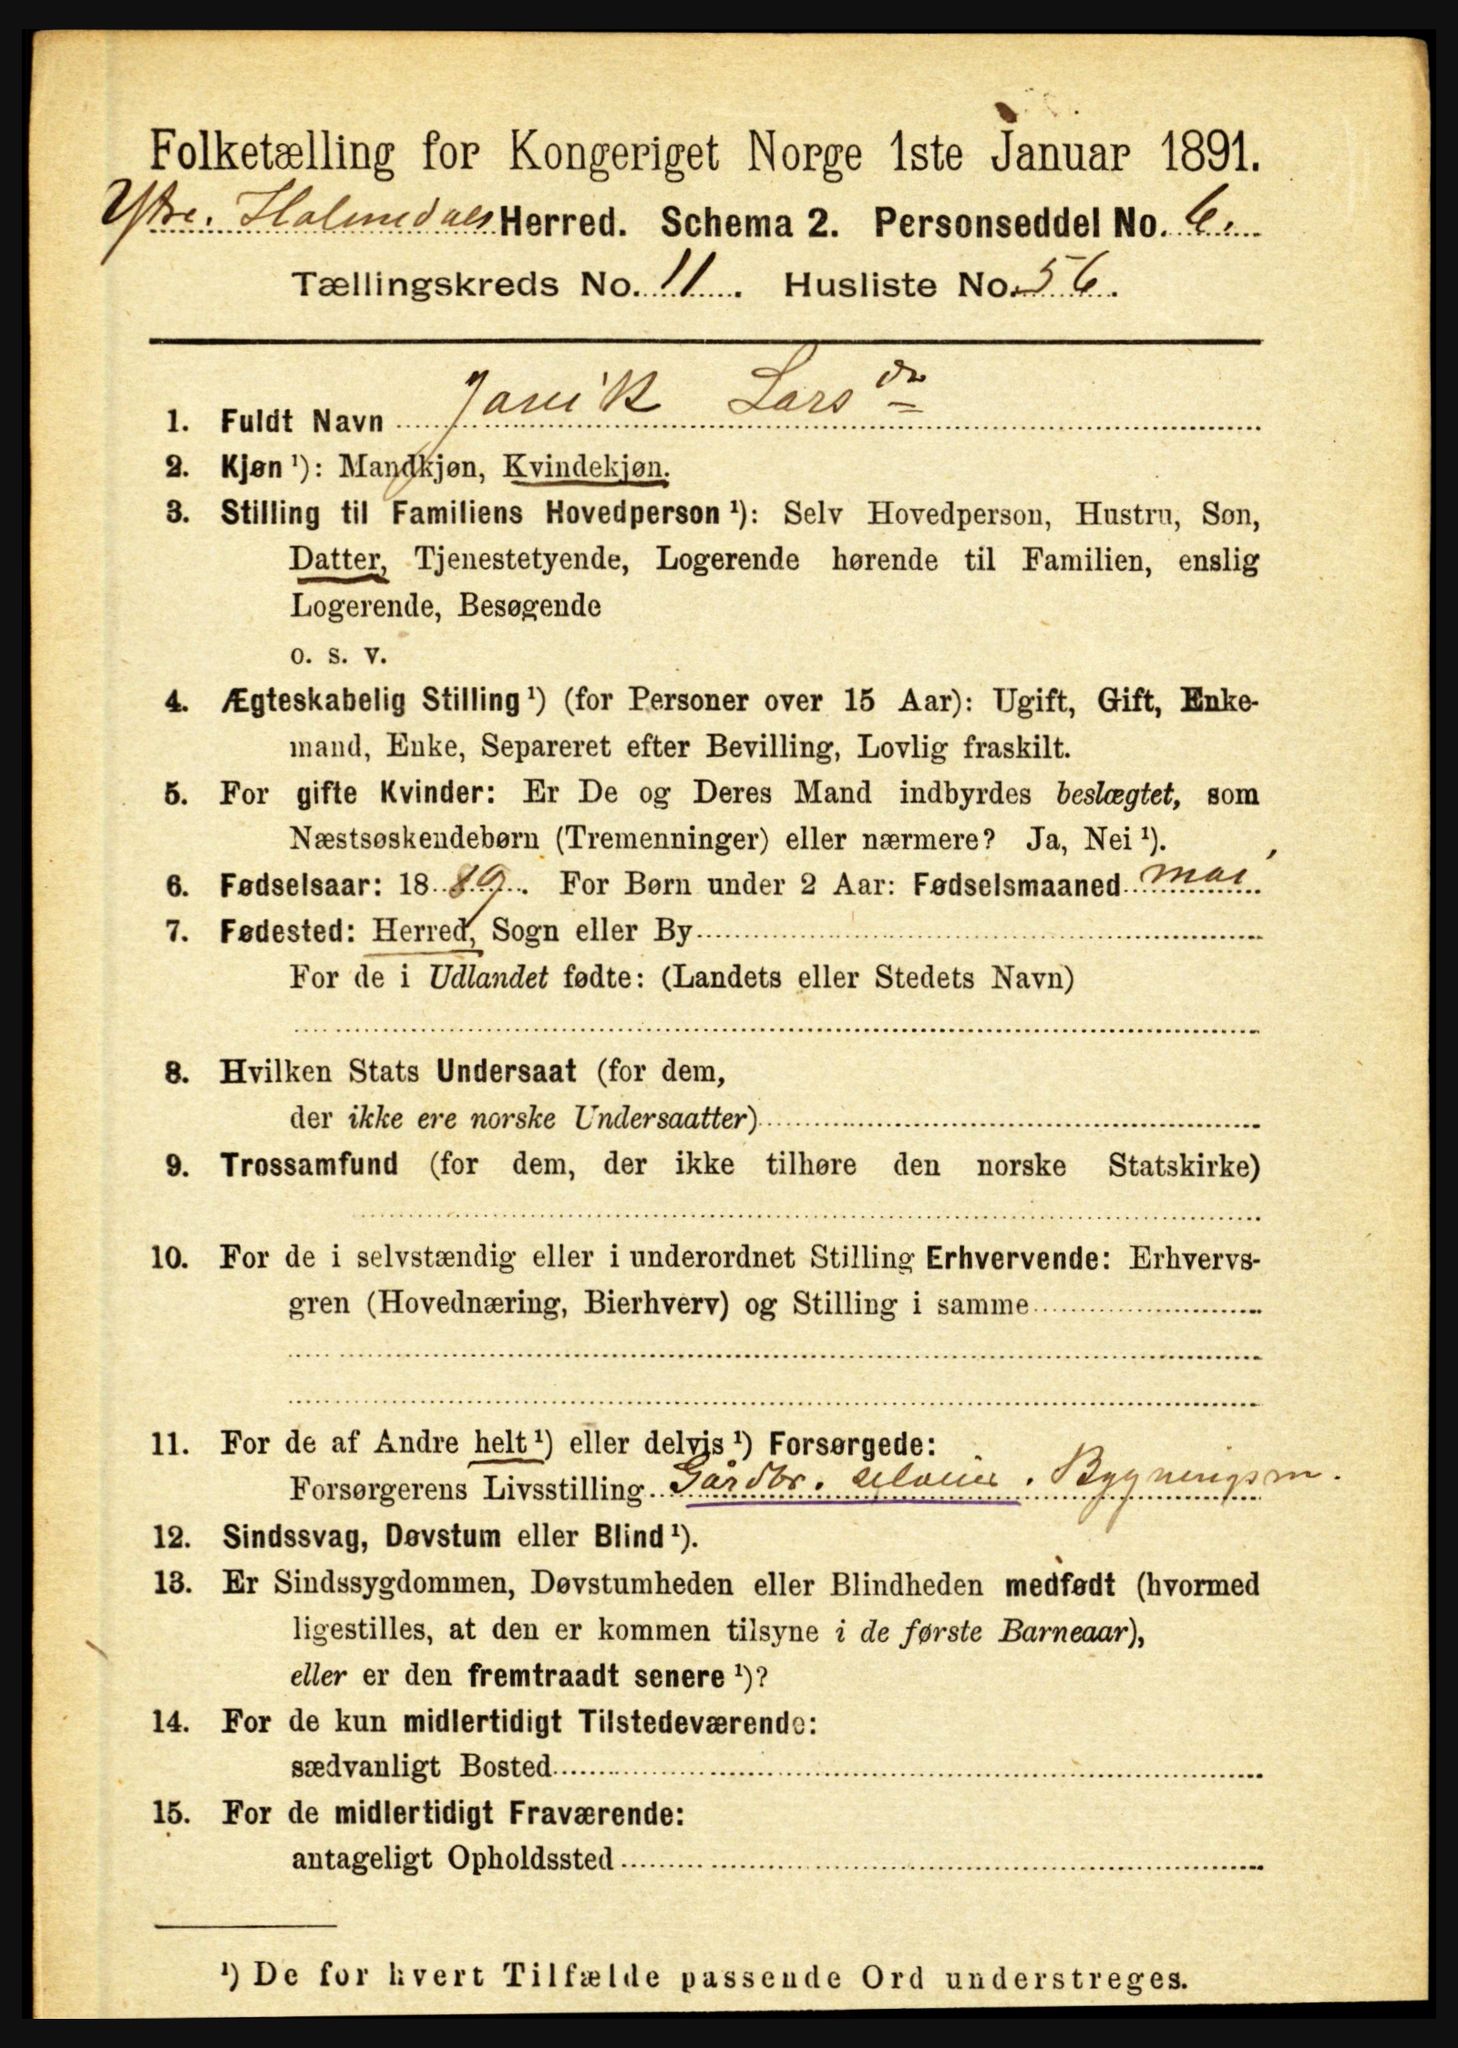 Folketælling for Kongeriget Norge 1ste Januar 1891.
Ytre Holmedals Herred. Schema 2. Personseddel No. 6.
Tællingskreds No. 11. Husliste No. 56.
1. Fuldt Navn Janik Larsdr
2. Kjøn ¹): Mandkjøn, Kvindekjøn.
3. Stilling til Familiens Hovedperson ¹): Selv Hovedperson, Hustru, Søn,
Datter, Tjenestetyende, Logerende hørende til Familien, enslig
Logerende, Besøgende
o. s. v.
4. Ægteskabelig Stilling ¹) (for Personer over 15 Aar): Ugift, Gift, Enke-
mand, Enke, Separeret efter Bevilling, Lovlig fraskilt.
5. For gifte Kvinder: Er De og Deres Mand indbyrdes beslægtet, som
Næstsøskendebørn (Tremenninger) eller nærmere? Ja, Nei ¹).
6. Fødselsaar: 1889. For Børn under 2 Aar: Fødselsmaaned mai
7. Fødested: Herred, Sogn eller By
For de i Udlandet fødte: (Landets eller Stedets Navn)
8. Hvilken Stats Undersaat (for dem,
der ikke ere norske Undersaatter)
9. Trossamfund (for dem, der ikke tilhøre den norske Statskirke)
10. For de i selvstændig eller i underordnet Stilling Erhvervende: Erhvervs-
gren (Hovednæring, Bierhverv) og Stilling i samme
11. For de af Andre helt ¹) eller delvis ¹) Forsørgede:
Forsørgerens Livsstilling Gårdbr. selveier. Bygningsm.
12. Sindssvag, Døvstum eller Blind ¹).
13. Er Sindssygdommen, Døvstumheden eller Blindheden medfødt (hvormed
ligestilles, at den er kommen tilsyne i de første Barneaar),
eller er den fremtraadt senere ¹)?
14. For de kun midlertidigt Tilstedeværende:
sædvanligt Bosted
15. For de midlertidigt Fraværende:
antageligt Opholdssted
¹) De for hvert Tilfælde passende Ord understreges.